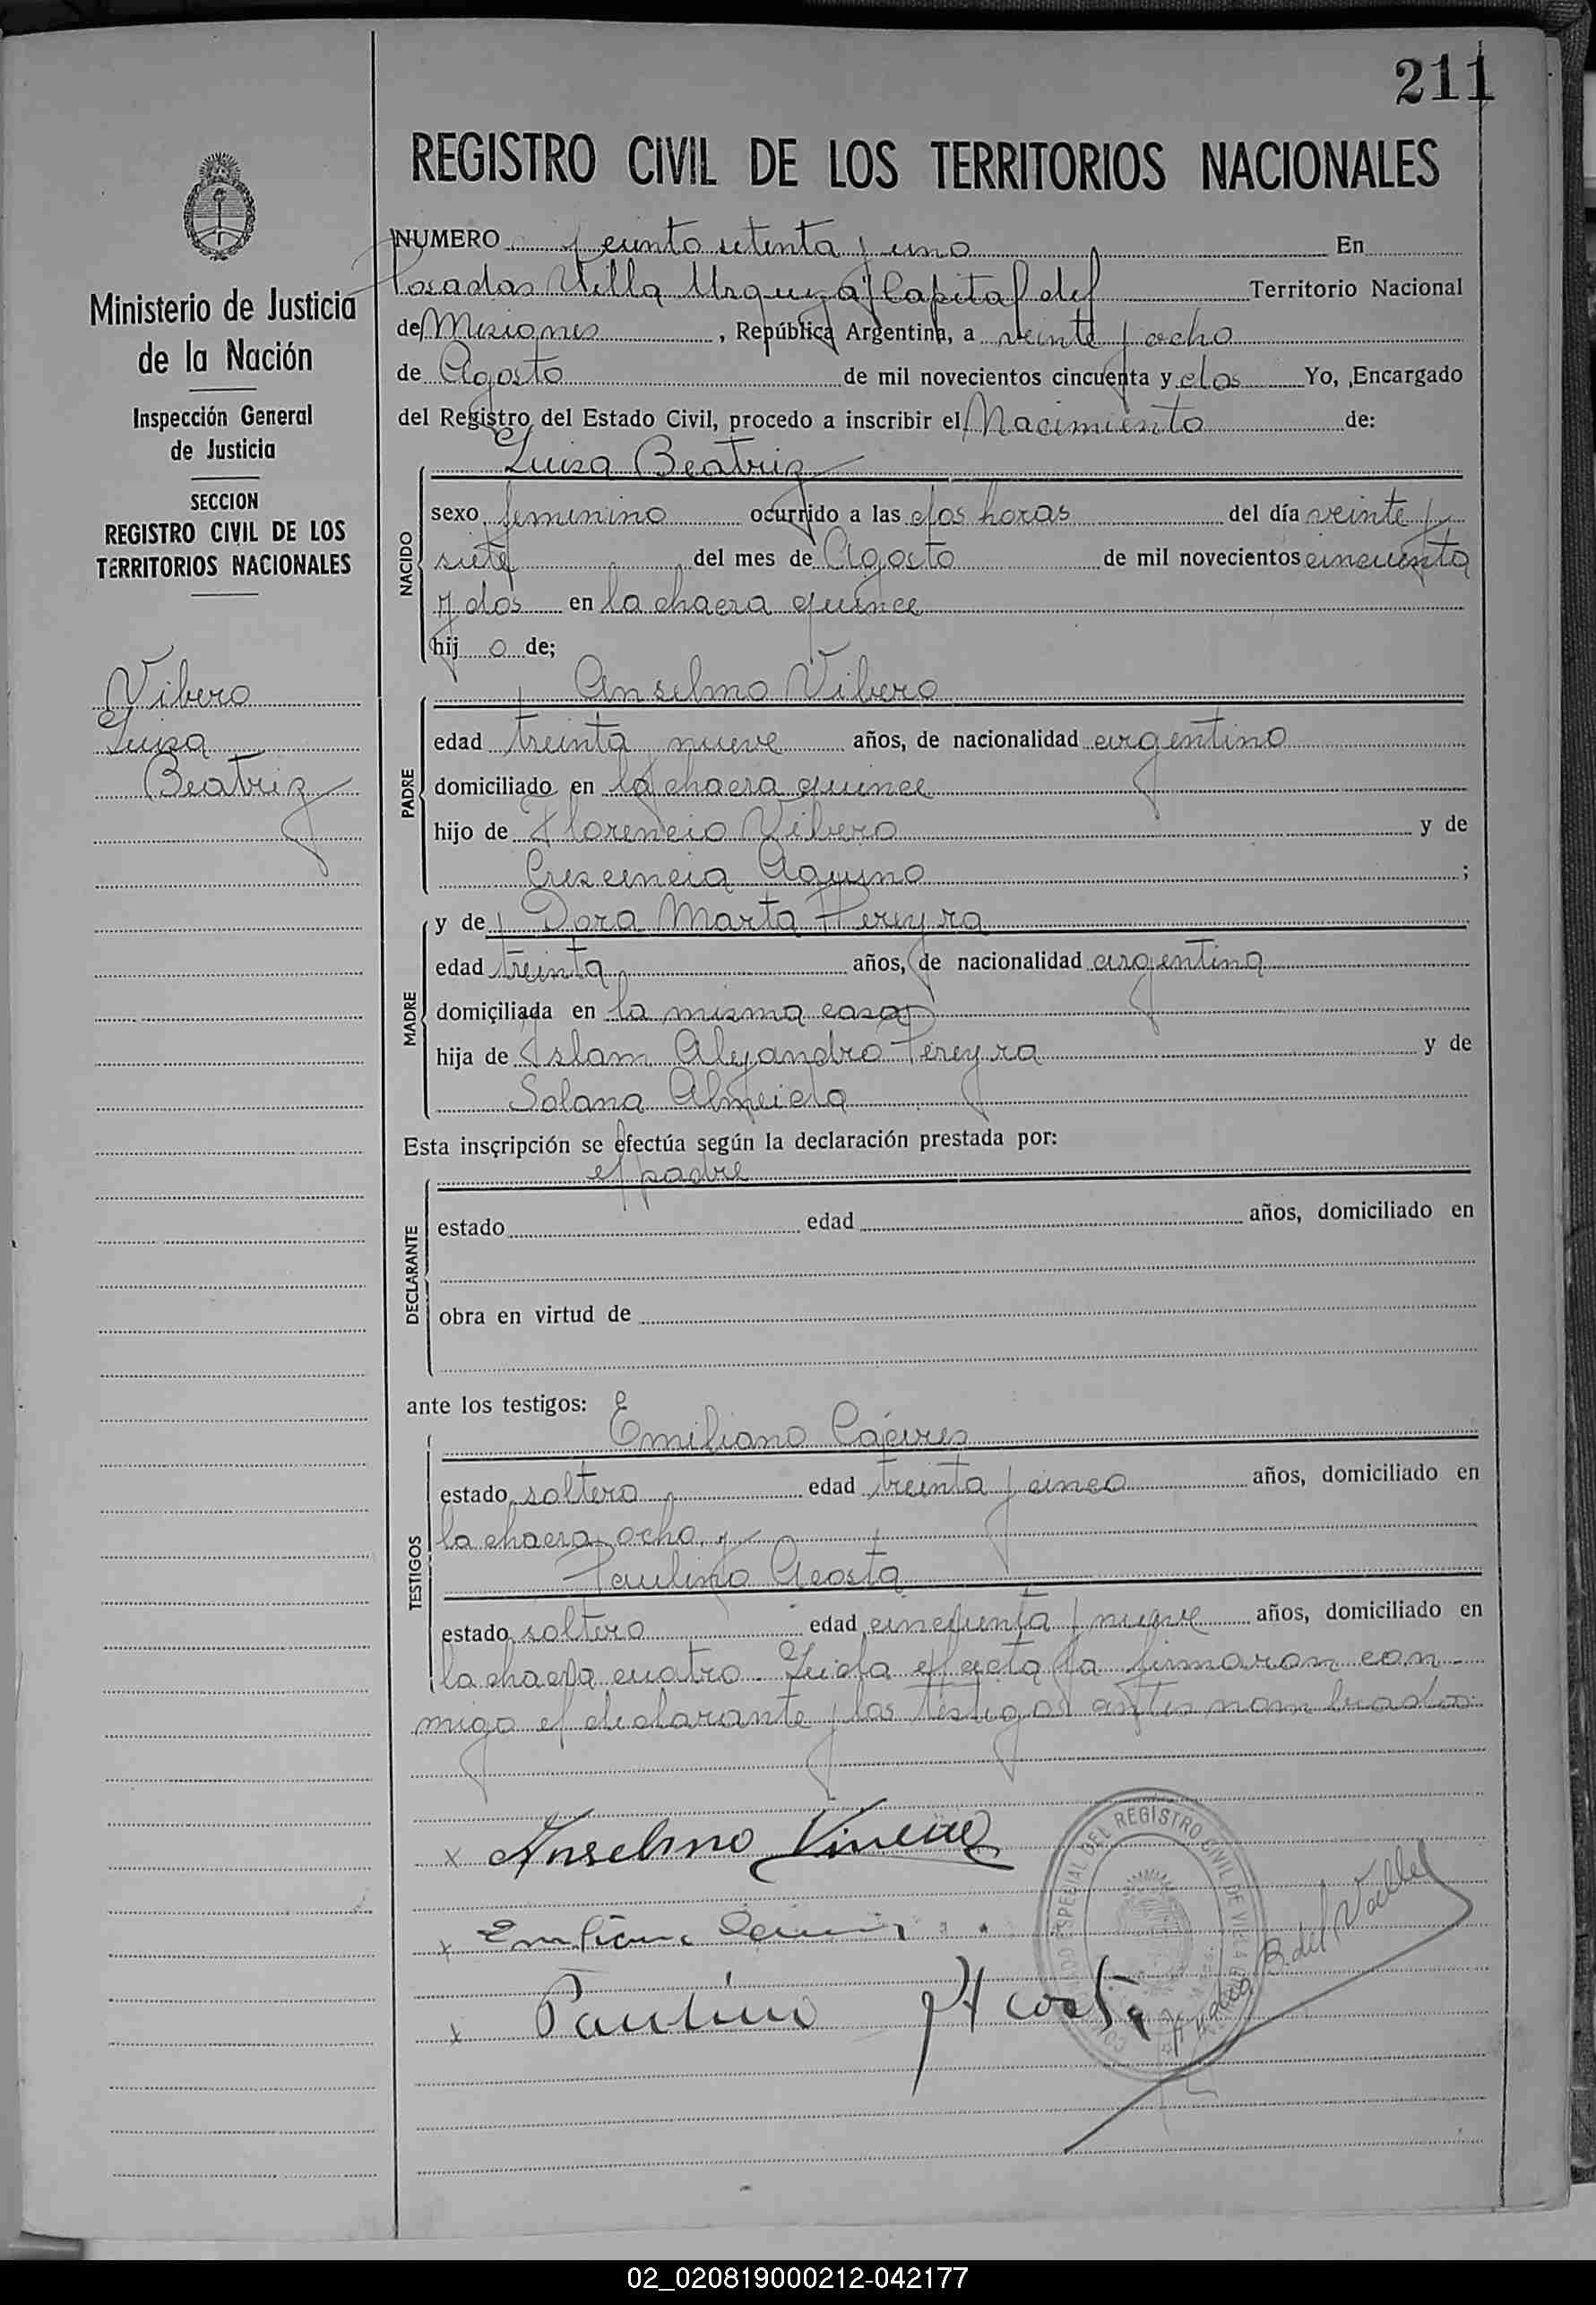 211
REGISTRO CIVIL DE LOS TERRITORIOS NACIONALES
Ministerio de Justicia
de la Nación
Inspección General
de Justicia
SECCION
REGISTRO CIVIL DE LOS
TERRITORIOS NACIONALES
Vibero
Luisa
Beatriz
NUMERO ciento setenta y uno En
Posadas Villa Urquiza Capital del Territorio Nacional
de Misiones, República Argentina, a veinte y ocho
de Agosto de mil novecientos cincuenta y dos Yo, Encargado
del Registro del Estado Civil, procedo a inscribir el Nacimiento de:
Luisa Beatriz
NACIDO
sexo femenino ocurrido a las dos horas del día veinte y
siete del mes de Agosto de mil novecientos cincuenta
y dos en la chacra quince
hij a de;
Anselmo Vibero
PADRE
edad treinta nueve años, de nacionalidad argentino
domiciliado en la chacra quince
hijo de Florencio Vibero y de
Crescencia Aquino ;
y de Dora Marta Pereyra
MADRE
edad treinta años, de nacionalidad argentina
domiciliada en la misma casa
hija de Islam Alejandro Pereyra y de
Solana Almeida
Esta inscripción se efectúa según la declaración prestada por:
el padre
DECLARANTE
estado edad años, domiciliado en
obra en virtud de
ante los testigos:
Emiliano Cáceres
TESTIGOS
estado soltero edad treinta y cinco años, domiciliado en
la chacra ocho y
Paulino Acosta
estado soltero edad cincuenta y nueve años, domiciliado en
la chacra cuatro. Leida el acta la firmaron con-
migo el declarante y los testigos antes nombrados
x Anselmo
x
x Paulino Acosta
ESPECIAL DEL REGISTRO CIVIL DE
B. del Valle
02_020819000212-042177